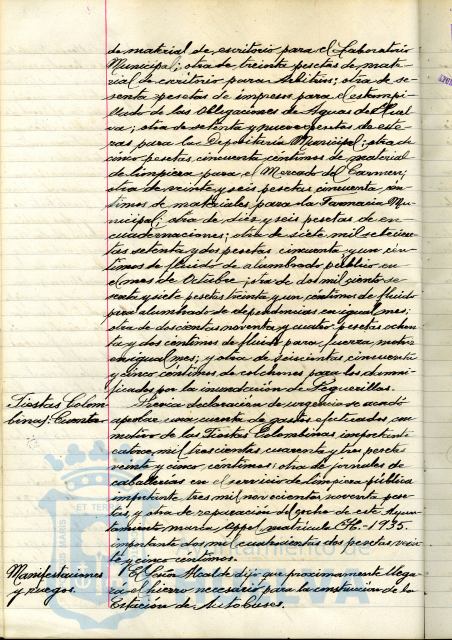 de material de escritorio para el Laboratorio
Municipal; otra de treinta pesetas de mate-
rial de escritorio para Arbitrios; otra de se-
senta pesetas de impresos para el estampi-
llado de las Obligaciones de Aguas de Huel-
va; otra de setenta y nueve pesetas de este-
ras para la Depositaría Municipal; otra de
cinco pesetas cincuenta céntimos de material
de limpieza para el Mercado del Carmen;
otra de veinte y seis pesetas cincuenta cén-
timos de materiales para la Farmacia Mu-
nicipal; otra de diez y seis pesetas de en-
cuadernaciones; otra de siete mil setecien-
tas setenta y dos pesetas cincuenta y un cén-
timos de fluido de alumbrado público en
el mes de Octubre; otra de dos mil ciento se-
senta y siete pesetas treinta y un céntimos de fluido
para alumbrado de dependencias en igual mes;
otra de doscientas noventa y cuatro pesetas ochen-
ta y dos céntimos de fluido para fuerza motriz
en igual mes; y otra de seiscientas cincuenta
y cinco céntimos de colchones para los damni-
ficados por la inundación de Peguerillas.
Fiestas Colom-
binas: Cuenta
Previa declaración de urgencia se acordó
aprobar una cuenta de gastos efectuados con
motivo de las Fiestas Colombinas importante
catorce mil trescientas cuarenta y tres pesetas
veinte y cinco céntimos; otra de jornales de
caballerías en el servicio de limpieza pública
importante tres mil novecientas noventa pese-
tas y otra de reparación del coche de este Ayun-
tamiento marca Oppel matrícula H.-1935.
importante dos mil cuatrocientas dos pesetas vein-
te y cinco céntimos.
Manifestaciones
y ruegos.
El Señor Alcalde dijo que proximamente llega-
rá el hierro necesario para la construcción de la
Estación de Autobuses.
Ayuntamiento de
HUELVA